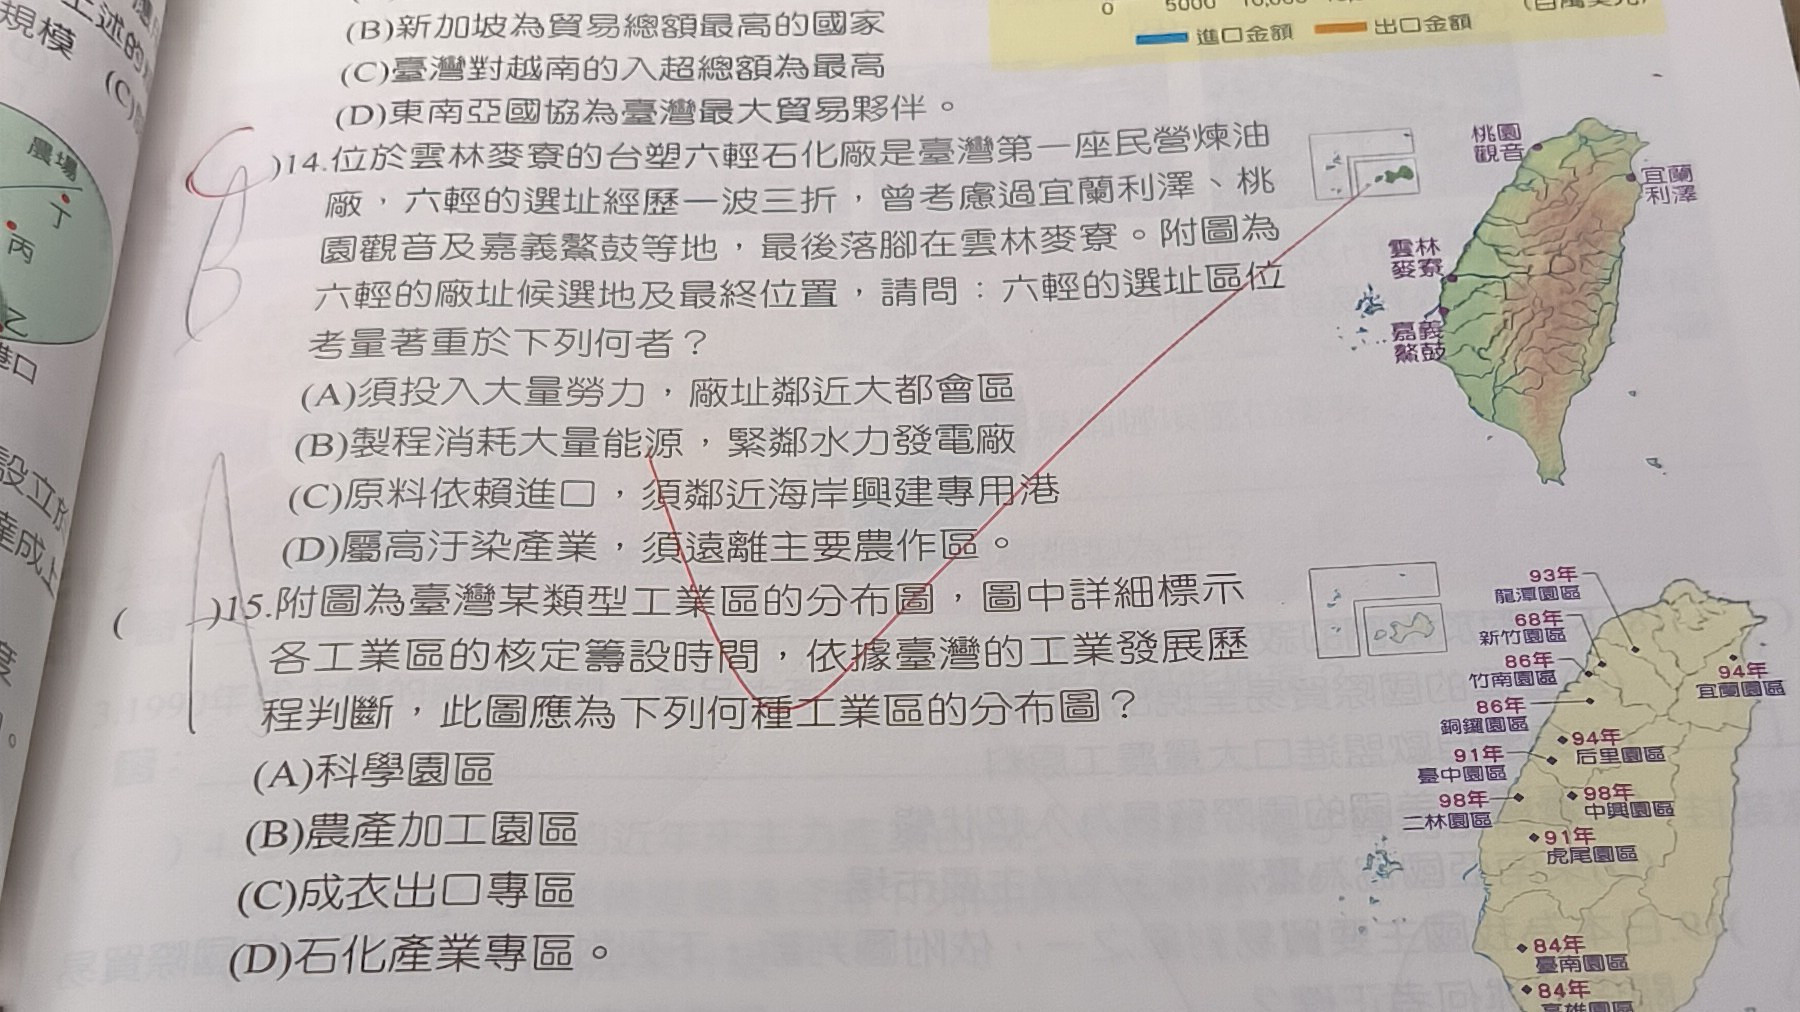 (B)新加坡為貿易總額最高的國家
(C)臺灣對越南的入超總額為最高
(D)東南亞國協為臺灣最大貿易夥伴。
0 5000 10,000
進口金額 出口金額
)14.位於雲林麥寮的台塑六輕石化廠是臺灣第一座民營煉油
廠，六輕的選址經歷一波三折，曾考慮過宜蘭利澤、桃
園觀音及嘉義鰲鼓等地，最後落腳在雲林麥寮。附圖為
六輕的廠址候選地及最終位置，請問：六輕的選址區位
考量著重於下列何者？
(A)須投入大量勞力，廠址鄰近大都會區
(B)製程消耗大量能源，緊鄰水力發電廠
(C)原料依賴進口，須鄰近海岸興建專用港
(D)屬高汙染產業，須遠離主要農作區。
C
B
桃園
觀音
宜蘭
利澤
雲林
麥寮
嘉義
鰲鼓
( )15.附圖為臺灣某類型工業區的分布圖，圖中詳細標示
各工業區的核定籌設時間，依據臺灣的工業發展歷
程判斷，此圖應為下列何種工業區的分布圖？
(A)科學園區
(B)農產加工園區
(C)成衣出口專區
(D)石化產業專區。
A
93年
龍潭園區
68年
新竹園區
86年
竹南園區
86年
銅鑼園區
94年
宜蘭園區
94年
后里園區
91年
臺中園區
98年
二林園區
98年
中興園區
91年
虎尾園區
84年
臺南園區
84年
高雄園區
規模
上述的
(C)
農場
丁
丙
乙
港口
設立於
達成上
度